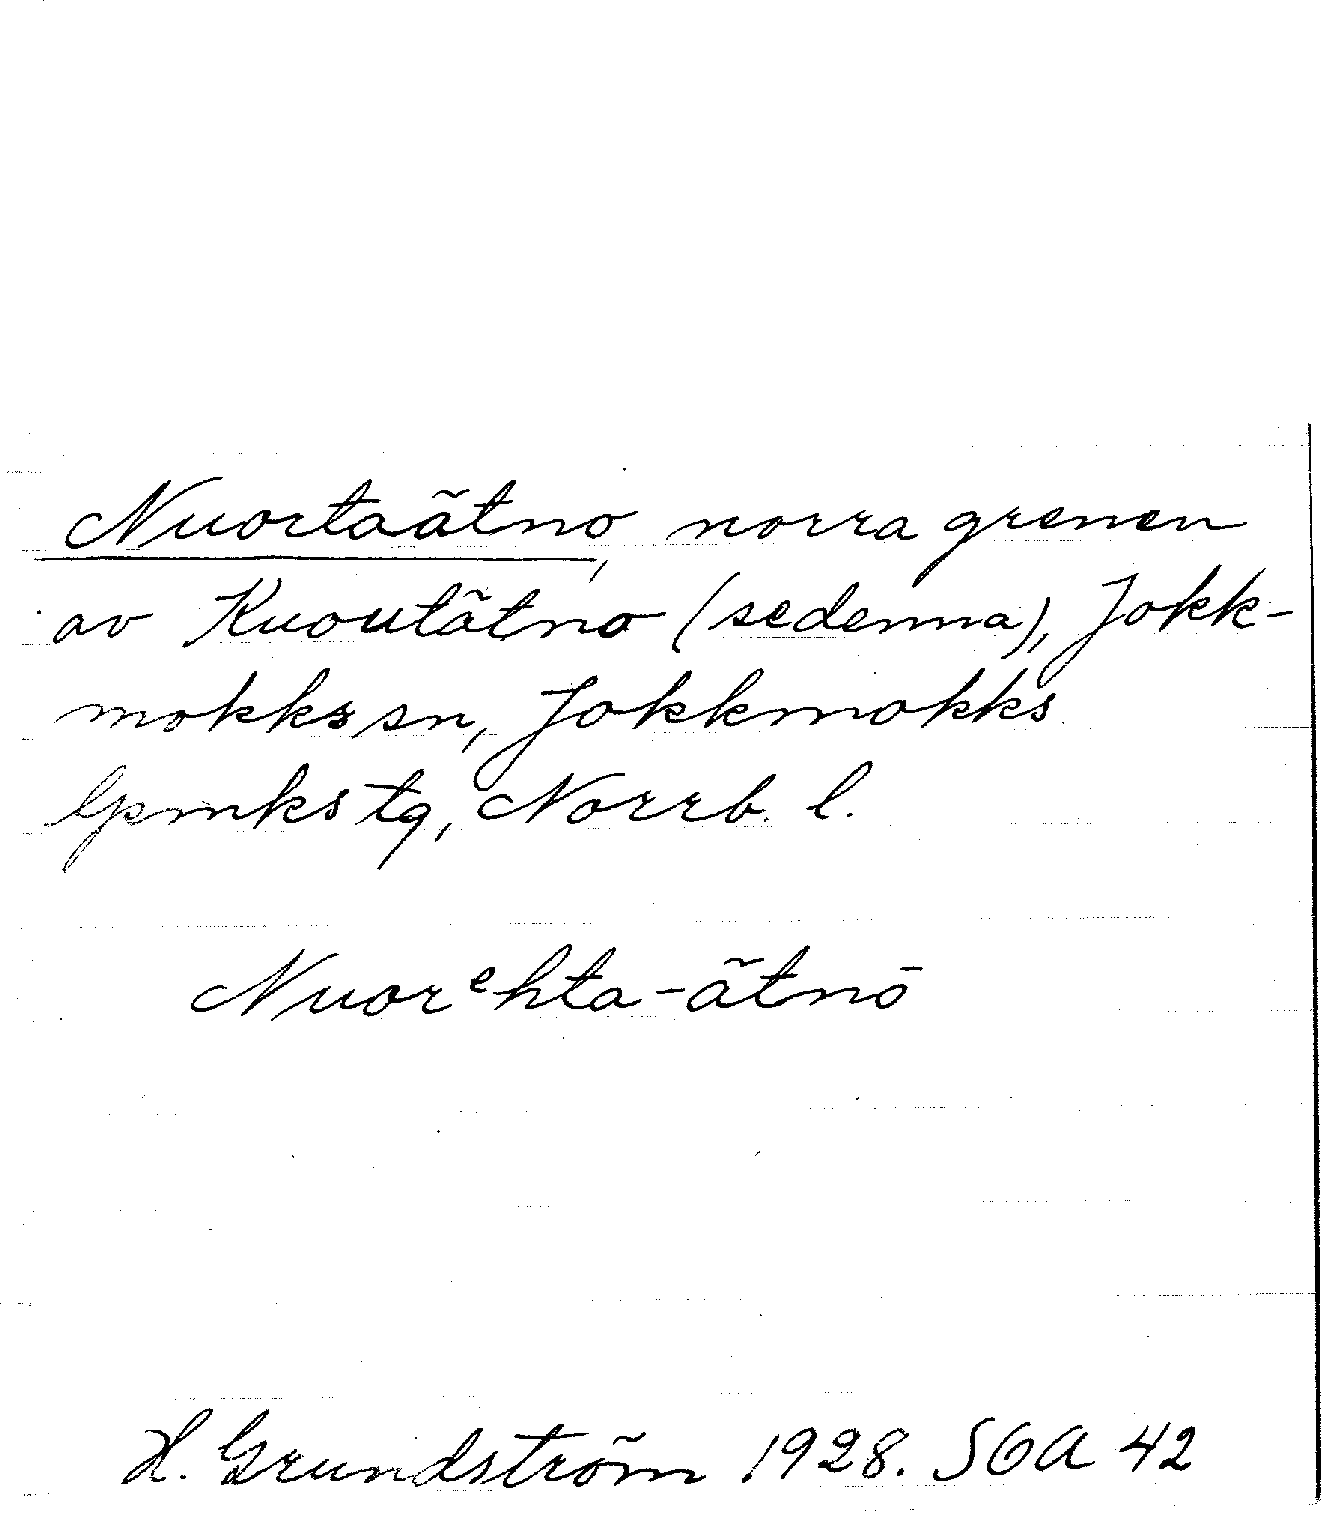 Nuortaätno, norra grenen
av Kuoutätno (se denna), Jokk-
mokks sn, Jokkmokks
lpmks tg, Norrb. l.
Nuorᵉhta-ätnō
H. Grundström 1928. SOA 42